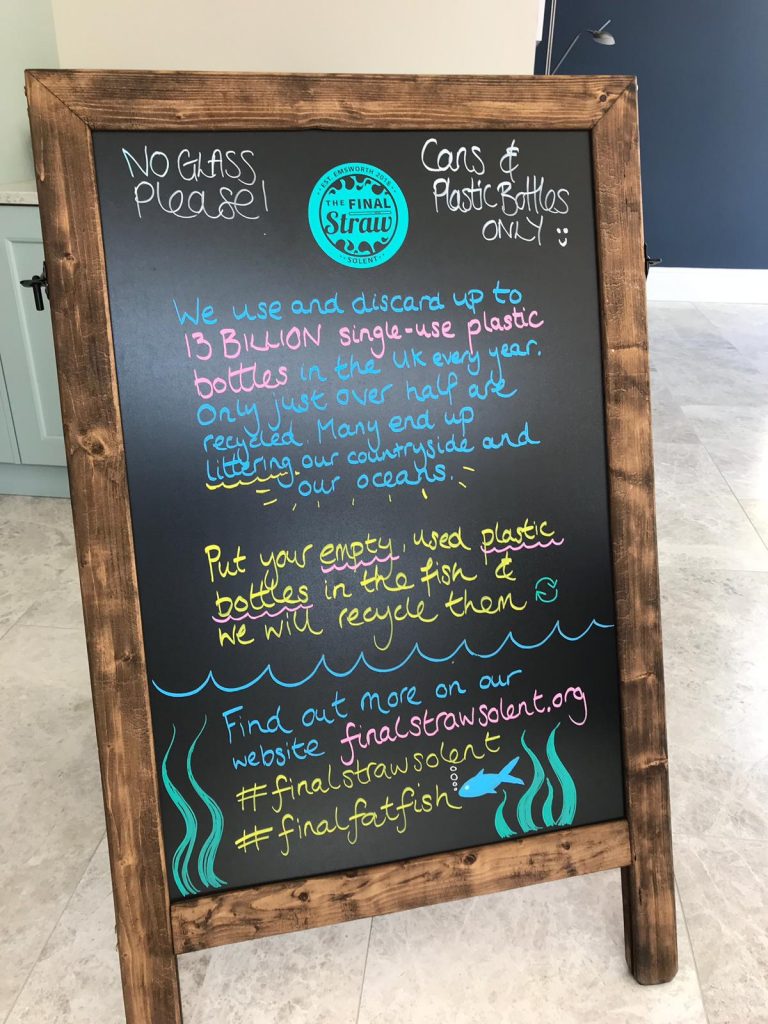 NO GLASS
Please!
EST. EMSWORTH 2018
THE FINAL
Straw
SOLENT
Cans &
Plastic Bottles
ONLY
We use and discard up to
13 BILLION single-use plastic
bottles in the UK every year.
Only just over half are
recycled. Many end up
littering our countryside and
our oceans.
Put your empty, used plastic
bottles in the fish &
we will recycle them
Find out more on our
website finalstrawsolent.org
#finalstrawsolent
#finalfatfish